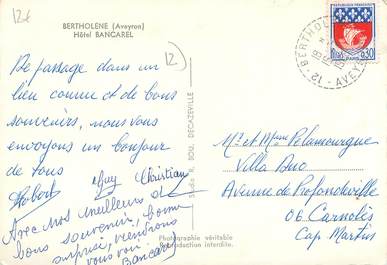 12€
BERTHOLENE (Aveyron)
Hôtel BANCAREL
12)
De passage dans un
lieu connu et de bons
souvenirs, nous vous
envoyons un bonjour
de tous
Robert Guy Christian
Avec nos meilleurs et
bons souvenirs, bonne
surprise, viendrons
vous voir
Bancarel
Studio R. BOU, DECAZEVILLE
Photographie véritable
Reproduction interdite.
0,30
BERTHOL
12 - AVEY
Mr et Mme Pelamourgue
Villa Duo
Avenue de Profondeville
06. Carnolès
Cap Martin